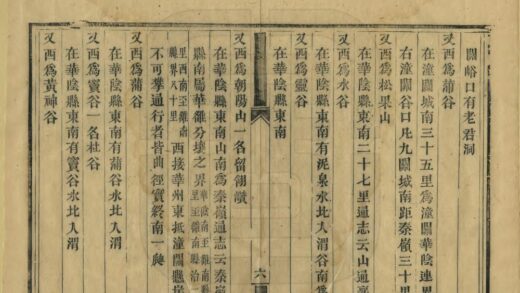 關峪口有老君洞
又西爲蒲谷
在潼關城南三十五里爲潼關華陰連界
右潼關谷口凡九關城南距秦嶺三十里
又西爲松果山
在華陰縣東南二十七里通志云山通
又西爲水谷
在華陰縣東南有泥泉水谷南
又西爲靈谷
在華陰縣東南
六
又西爲朝陽山一名留
在華陰縣東南山南爲秦嶺通志云秦
縣南屬華雒分壤之界
里西南至雒南
縣界八十里
西接華州東抵潼關懸崖
不可攀通行者皆由徑實終南一
又西爲蒲谷
在華陰縣東南有蒲谷水北入渭
又西爲竇谷一名杜谷
在華陰縣東南有竇谷水北入渭
又西爲黃神谷